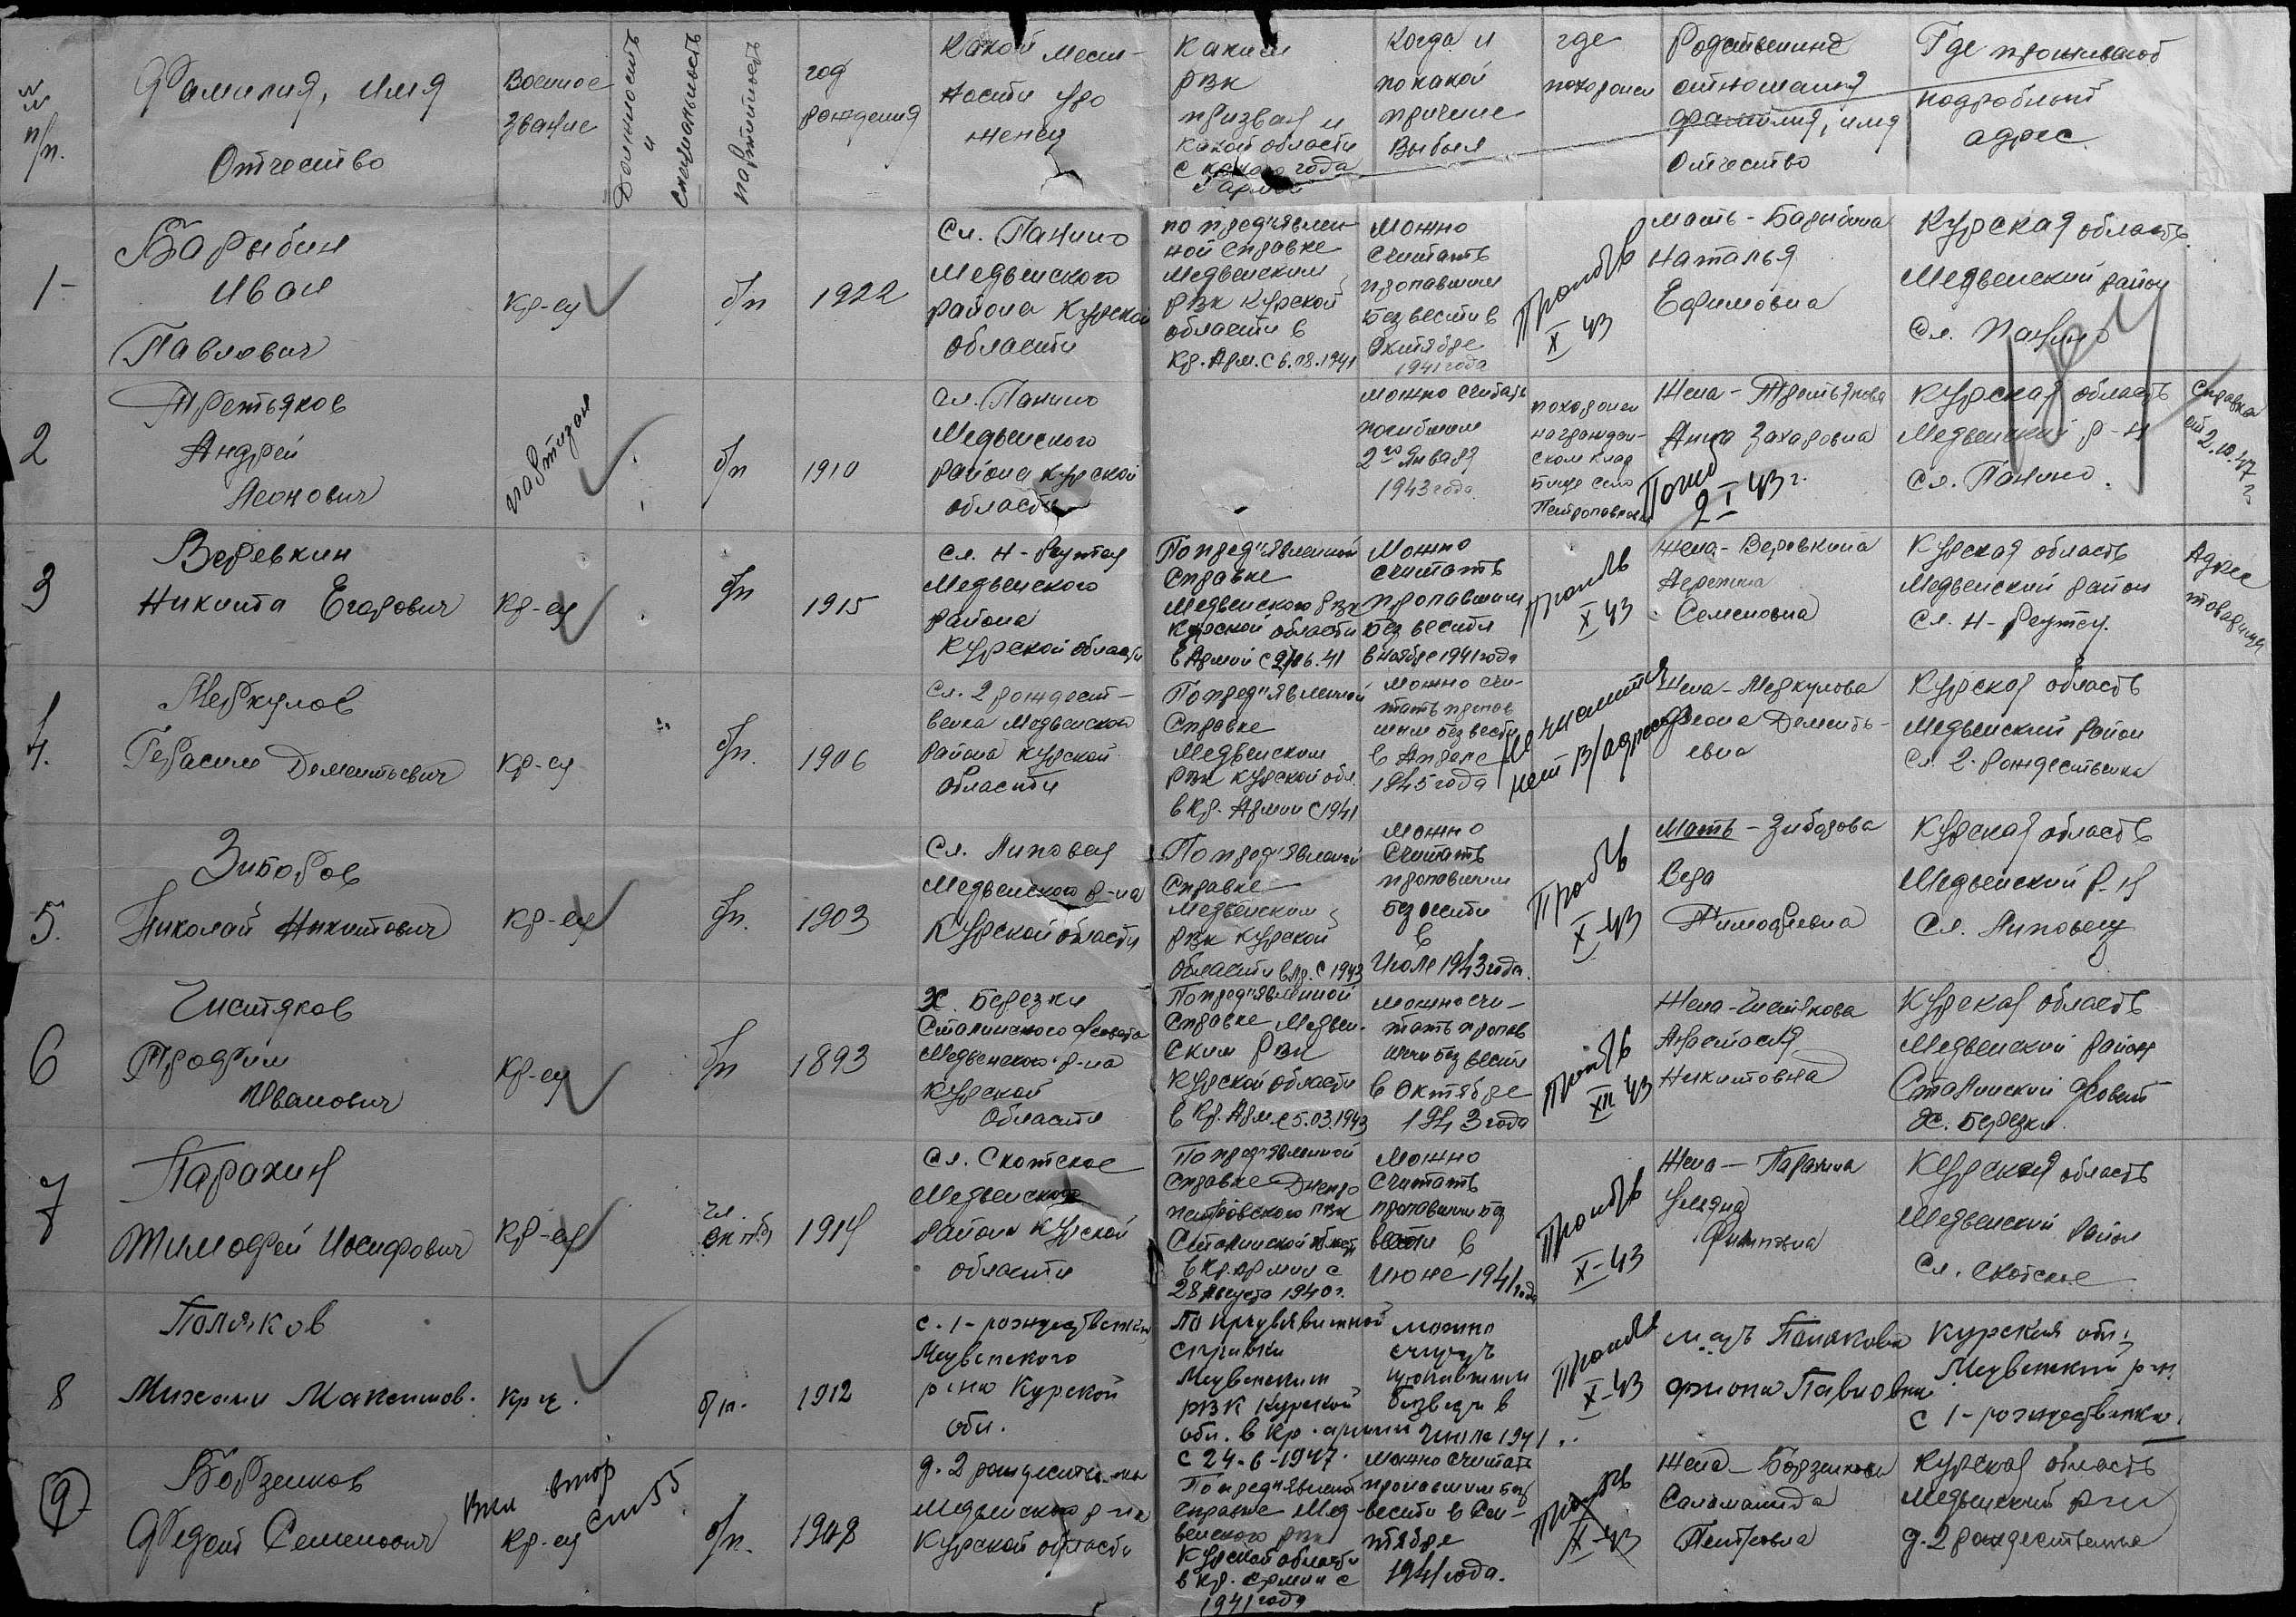 №№ п/п.
Фамилия, имя
Отчество
Военное
звание
Должность и
специальность
партийность
год
рождения
Какой мест-
ности уро
женец
Каким
РВК
призван и
какой области
с какого года
в армии
Когда и
по какой
причине
выбыл
где
похоронен
Родственные
отношения
фамилия, имя
отчество
Где проживают
подробный
адрес
1-
Барыбин
Иван
Павлович
Кр-ец
б/п
1922
Сл. Панино
Медвенского
района Курской
области
по предъявлен
ной справке
Медвенским
РВК Курской
области в
Кр. Арм. с 6.08.1941
можно
считать
пропавшим
без вести в
октябре
1941 года
X 43
мать - Барыбина
Наталья
Ефимовна
Курская область
Медвенский район
Сл. Панино
2
Третьяков
Андрей
Леонович
партизан
б/п
1910
сл. Панино
Медвенского
района Курской
области
можно считать
погибшим
2го января
1943 года
похоронен
на граждан-
ском клад
бище село
Жена - Третьякова
Анна Захаровна
Погиб
2 I 43 г.
Курская область
Медвенский р-н
Сл. Панино.
справка
от 2.10.47 г.
184
3
Веревкин
Никита Егорович
Кр-ец
б/п
1915
Сл. Н-Реутец
Медвенского
района
Курской области
По предъявленной
справке
Медвенского рвк
Курской области
в Армии с 6.41
Можно
считать
пропавшим
без вести
в ноябре 1941 года
X 43
Жена - Веревкина
Семеновна
Курская область
Медвенский район
Сл. Н-Реутец.
Адрес
товарища
4.
Меркулов
Герасим Дементьевич
Кр-ец
б/п.
1906
Сл. 2 рождест-
венка Медвенского
района Курской
области
По предъявленной
справке
Медвенским
рвк Курской обл.
в Кр. Армии с 1941
можно счи-
тать пропав
шим без вести
в Апреле
1945 года
не числится
нет в/адреса
Жена - Меркулова
Дементь-
евна
Курская область
Медвенский район
Сл. 2-рождественка
5.
Зиборов
Николай Никитович
Кр-ец
б/п.
1903
Сл. Липовец
Медвенского р-на
Курской области
По предъявленной
справке
Медвенским
рвк Курской
области в Кр. с 1943
можно
считать
пропавшим
без вести
в
Июле 1943 года.
X-43
Мать - Зиборова
Вера
Тимофеевна
Курская область
Медвенский р-н
Сл. Липовец
6
Чистяков
Трофим
Иванович
Кр-ец
б/п
1893
х. Березки
Сталинского с/совета
Медвенского р-на
Курской
области
По предъявленной
справке Медвен-
ским рвк
Курской области
в Кр. Арм. с 5.03.1943
можно счи-
тать пропав
шим без вести
в октябре
1943 года
XII 43
Жена - Чистякова
Анастасия
Никитовна
Курская область
Медвенский район
Сталинский с/совет
х. Березки.
7
Парахин
Тимофей Иосифович
Кр-ец
чл.
1914
Сл. Скотское
Медвенского
района Курской
области
По предъявленной
справке Днепро
петровского рвк
Сталинской области
в Кр. армии с
28 Августа 1940 г.
Можно
считать
пропавшим без
вести в
Июне 1941 года
X-43
Жена - Парахина
Курская область
Медвенский район
Сл. Скотское
8
Поляков
Михаил Максимов.
Кр-ец.
б/п.
1912
с. 1-рождественка
Медвенского
р-на Курской
обл.
По предъявленной
справки
Медвенским
РВК Курской
обл. в Кр. армии
с 24-6-1947.
можно
считать
пропавшим
без вести в
Июле 1941
X-43
мать Полякова
Павловна
Курская обл.
Медвенский р-н
с 1-рождественка.
9
Борзенков
Федот Семенович
Кр-ец
б/п.
1908
д. 2 рождественка
Медвенского р-на
Курской области
По предъявленной
справке Мед-
венского рвк
Курской области
в Кр. Армии с
1941 года
можно считать
пропавшим без
вести в Сен-
тябре
1941 года.
X-43
Жена - Борзенкова
Саломанида
Петровна
Курская область
Медвенский р-н
д. 2 рождественка